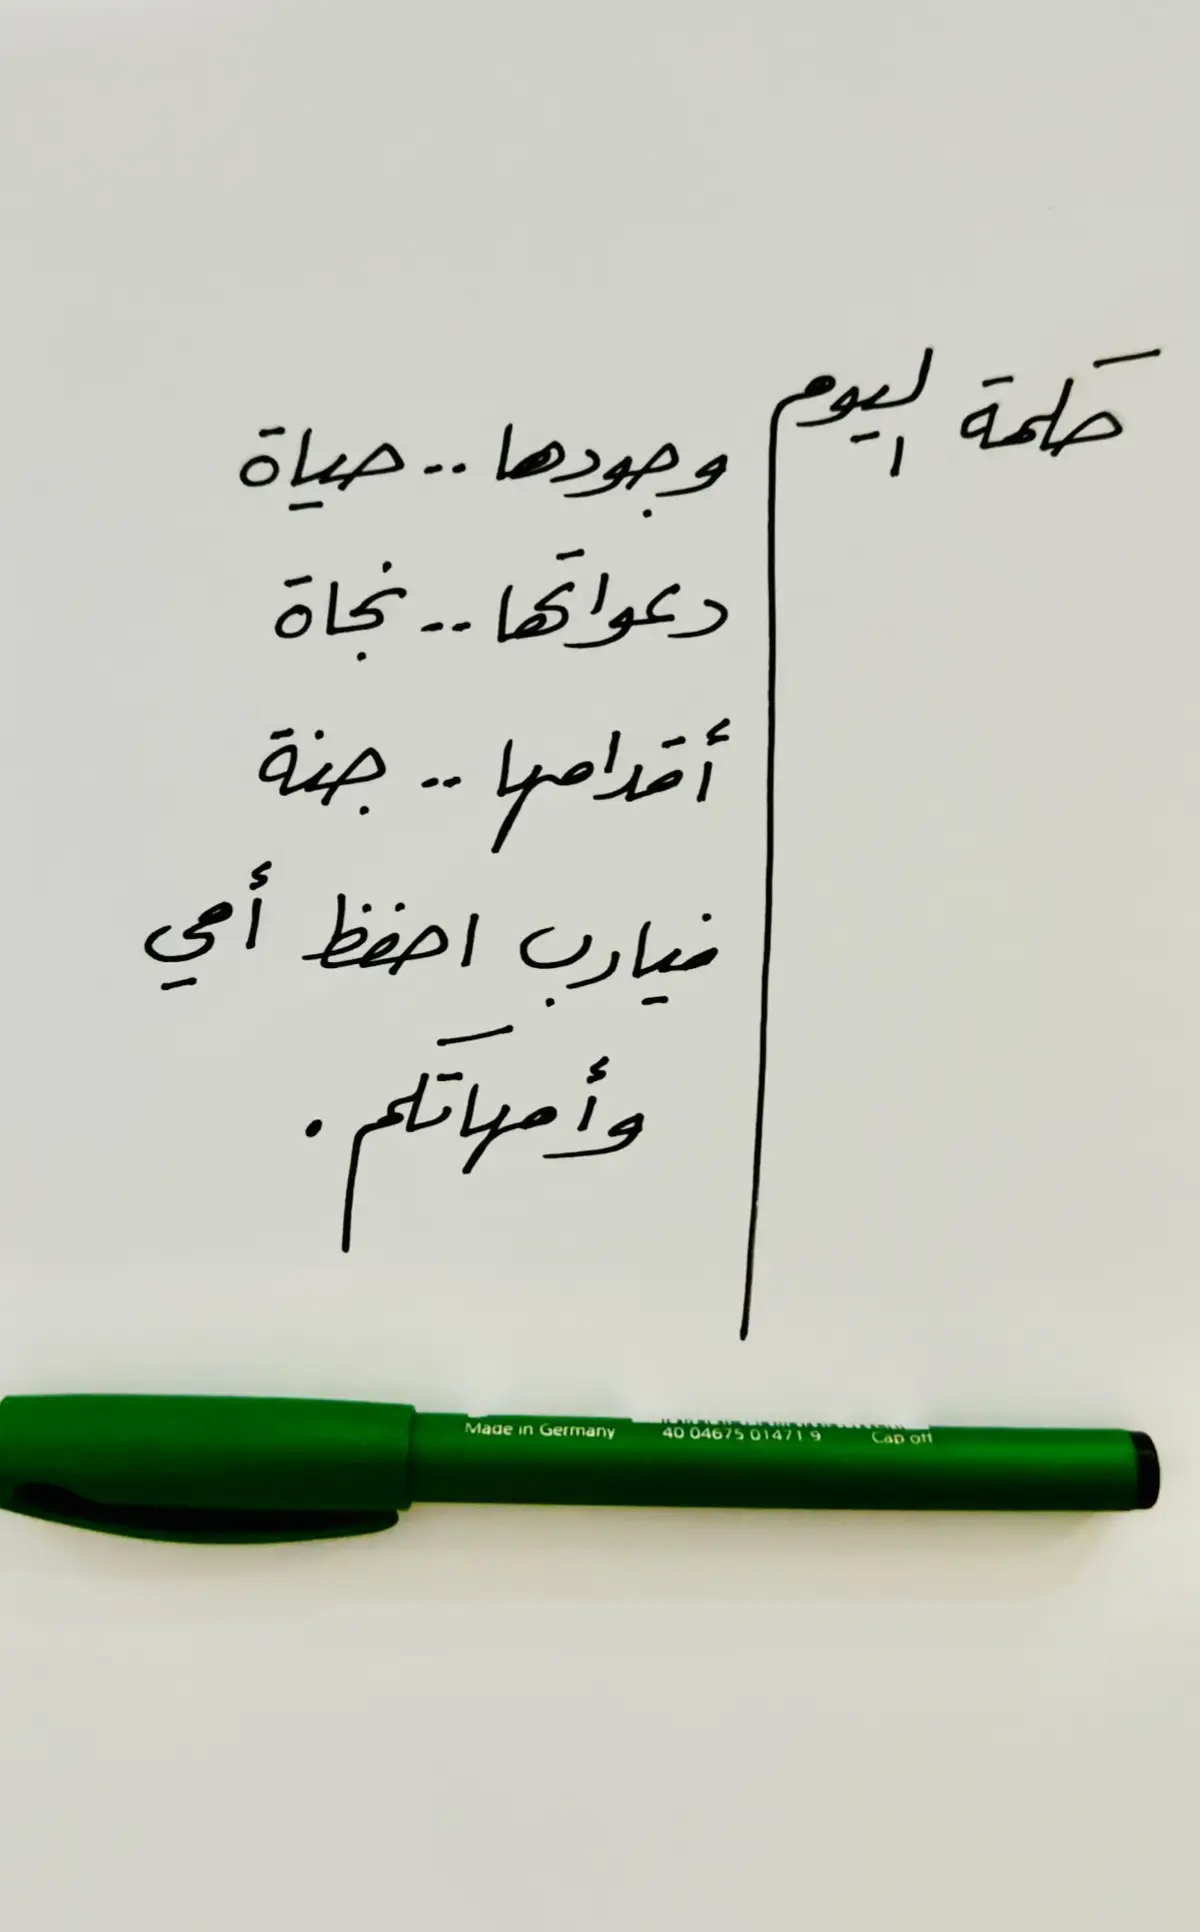 كلمة اليوم
وجودها .. حياة
دعواتها .. نجاة
أقدامها .. جنة
فيارب احفظ أمي
وأمهاتكم .
Made in Germany 40 04675 01471 9 Cap off